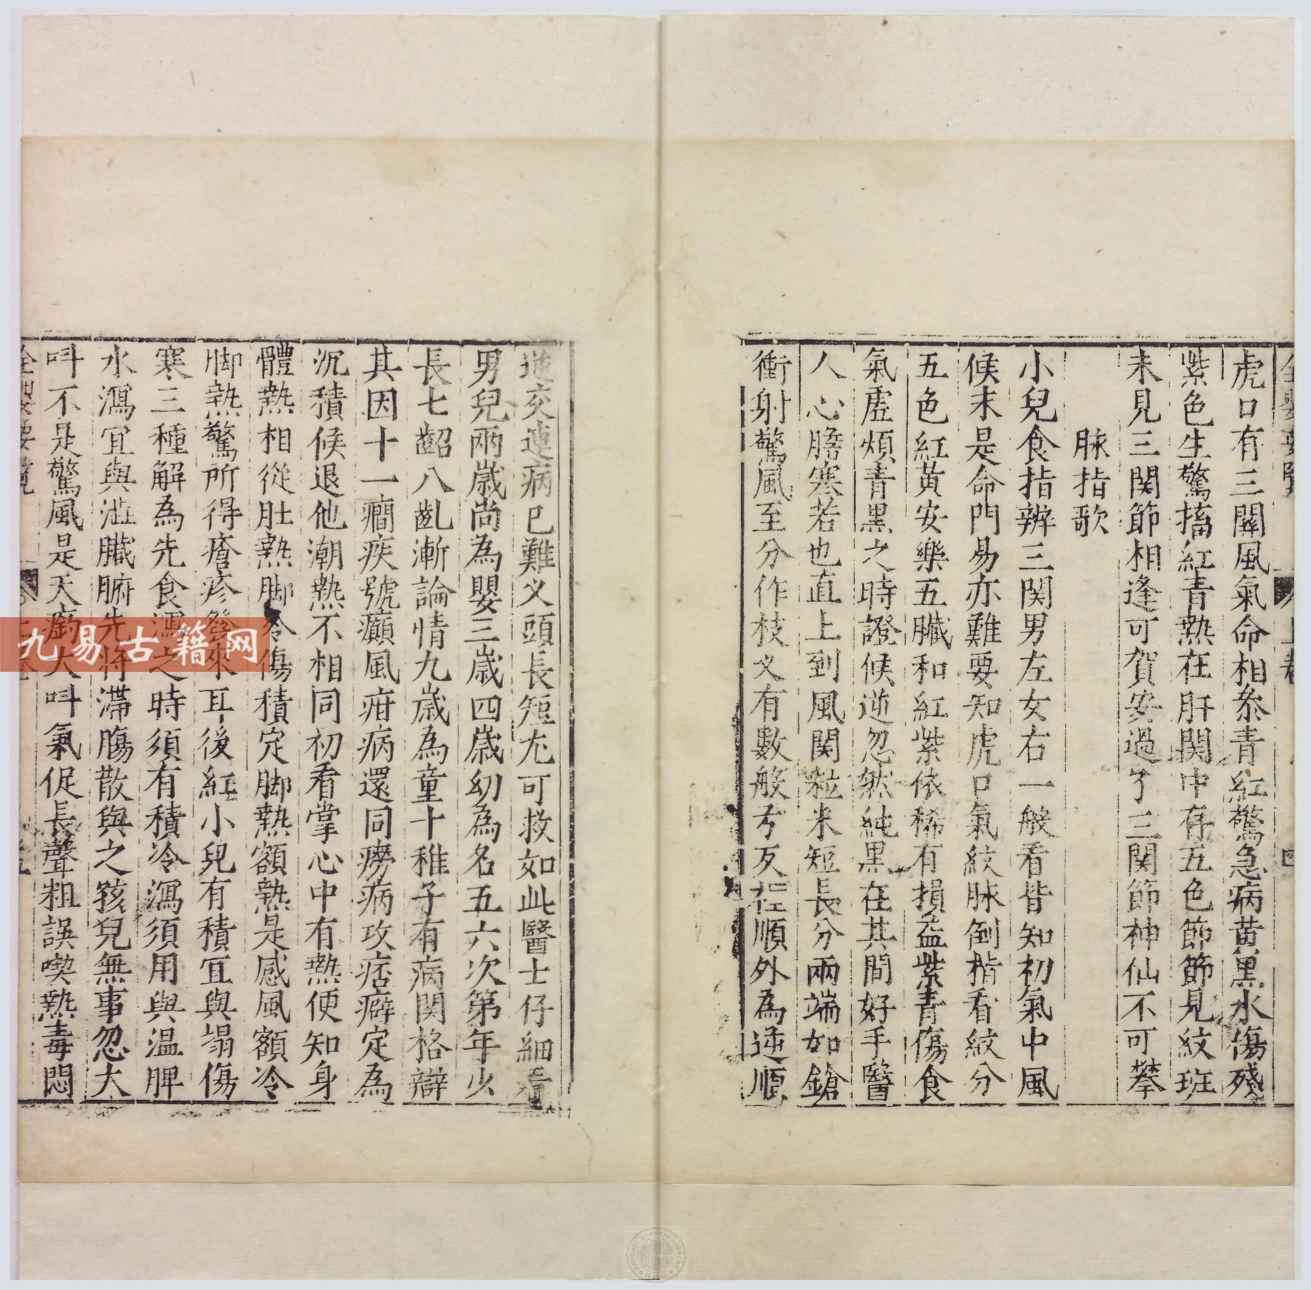 虎口有三關風氣命相叅青紅驚急病黄黒水傷殘
紫色生驚搐紅青熱在肝関中存五色節節見紋班
未見三関節相逢可賀安過了三関節神仙不可攀
脉指歌
小兒食指辨三関男左女右一般看皆知初氣中風
候末是命門易亦難要知虎口氣紋脉倒指看紋分
五色紅黄安樂五臟和紅紫依稀有損益紫青傷食
氣虚煩青黒之時證候逆忽然純黒在其間好手醫
人心膽寒若也直上到風関粒米短長分兩端如鎗
衝射驚風至分作枝义有數般弯反裎順外為逆順
逆交連病已難义頭長短尤可救如此醫士仔細看
男兒兩歳尚為嬰三歳四歳幼為名五六次第年少
長七齠八齓漸論情九歳為童十稚子有病関格辯
其因十一癎疾號癲風疳病還同癆病攻痞癖定為
沉積候退他潮熱不相同初看掌心中有熱便知身
體熱相從肚熱脚冷傷積定脚熱額熱是感風額冷
脚熱驚所得瘡疹發來耳後紅小兒有積宜與塌傷
寒三種解為先食瀉之時須有積冷瀉須用與温脾
水瀉宜與澁臟腑先將滯腸散與之孩兒無事忽大
呌不是驚風是天癎大呌氣促長聲粗誤喫熱毒悶
全嬰要覽
上卷
四
九易古籍网